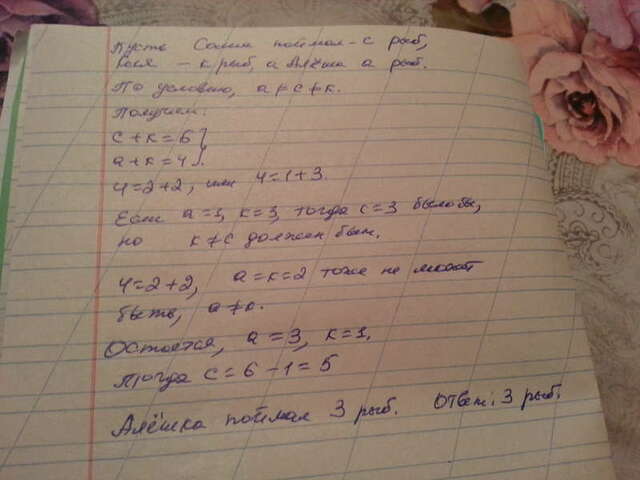 Пусть Саша поймал - с рыб,
Коля - к рыб, а Алёша а рыб.
По условию, а ≠ с ≠ к.
Получим:
с + к = 6 }
а + к = 4 }.
4 = 2 + 2, или 4 = 1 + 3.
Если а = 1, к = 3, тогда с = 3 было бы,
но к ≠ с должен быть.
4 = 2 + 2, а = к = 2 тоже не может
быть, а ≠ к.
Остаётся, а = 3, к = 1,
тогда с = 6 - 1 = 5
Алёшка поймал 3 рыб. Ответ: 3 рыб.